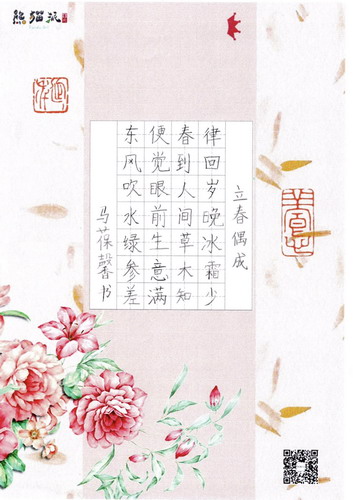 熊猫纸
立春偶成
律回岁晚冰霜少
春到人间草木知
便觉眼前生意满
东风吹水绿参差
马葆馨书